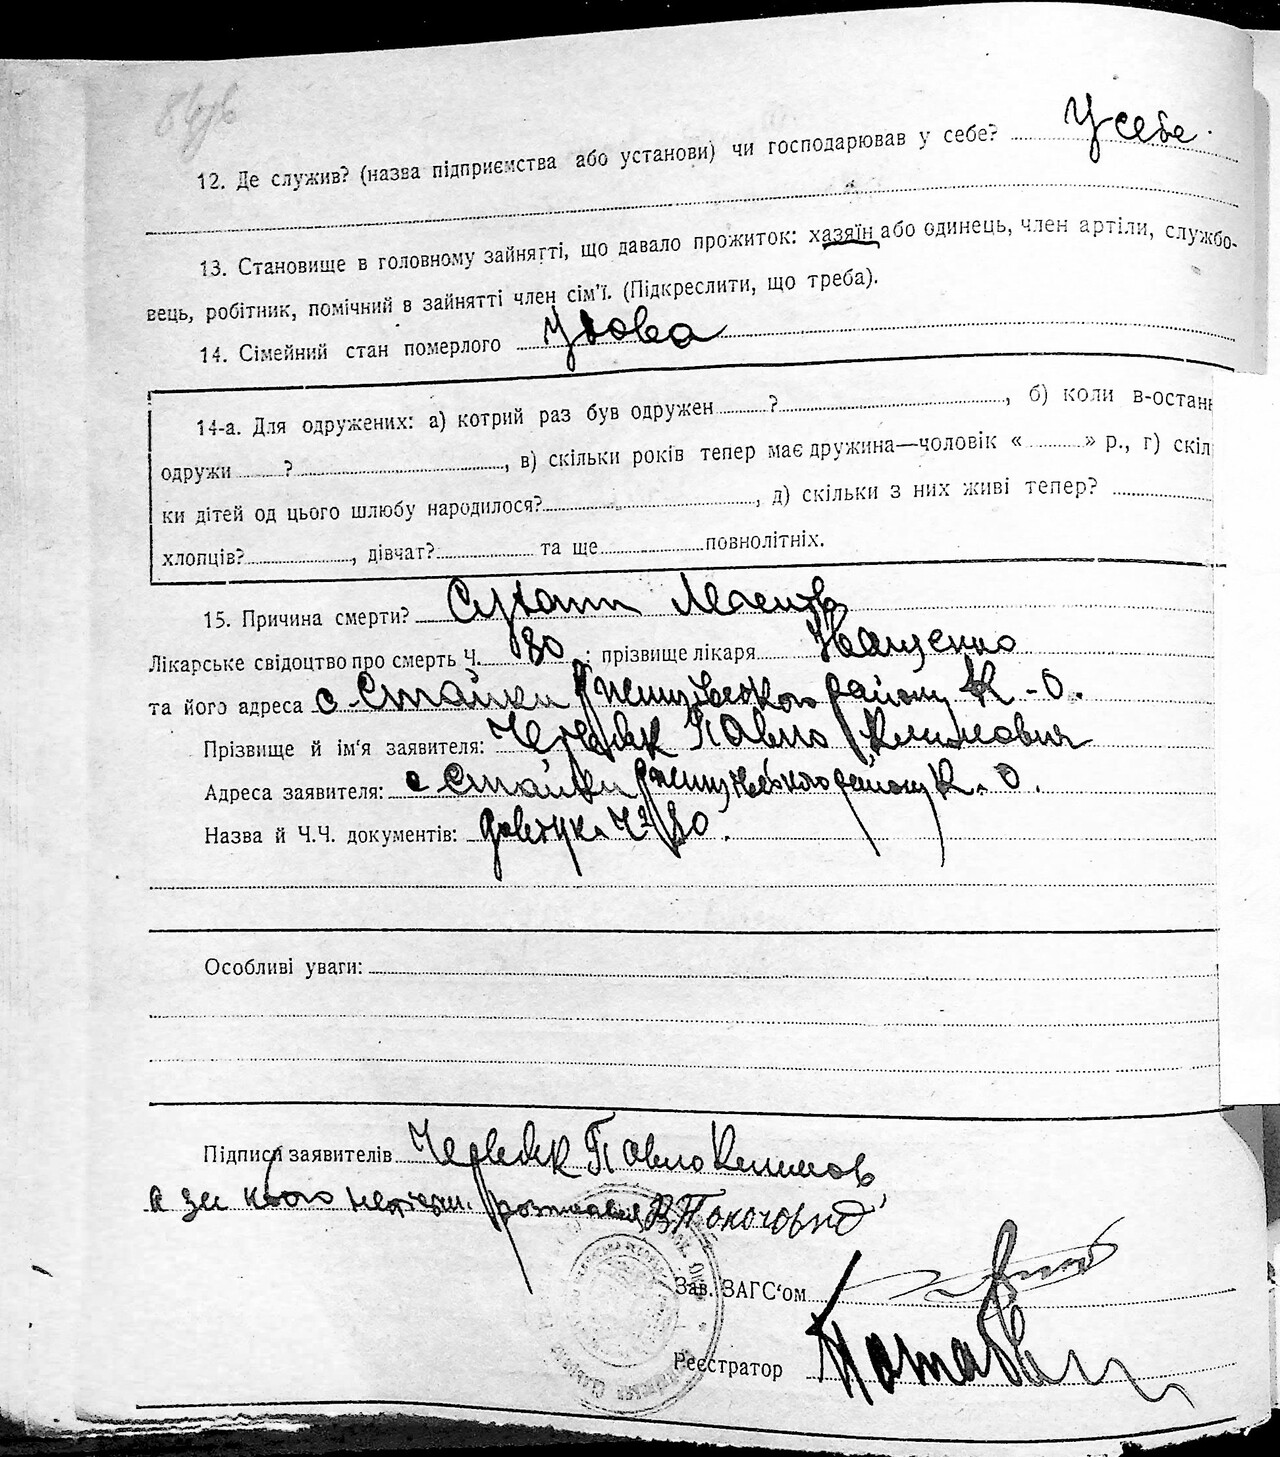 12. Де служив? (назва підприємства або установи) чи господарював у себе? У себе.
13. Становище в головному зайнятті, що давало прожиток: хазяїн або одинець, член артіли, службо-
вець, робітник, помічний в зайнятті член сім'ї. (Підкреслити, що треба).
14. Сімейний стан померлого Удова
14-а. Для одружених: а) котрий раз був одружен ?, б) коли в-останн
одружи ?, в) скільки років тепер має дружина—чоловік « » р., г) скіл
ки дітей од цього шлюбу народилося?, д) скільки з них живі тепер?
хлопців?, дівчат? та ще повнолітніх.
15. Причина смерти?
Лікарське свідоцтво про смерть Ч. 80; прізвище лікаря Іващенко
та його адреса с. Стайки району К-О.
Прізвище й ім'я заявителя: Червяк Павло Климович
Адреса заявителя: с Стайки району К. О.
Назва й Ч.Ч. документів: 80.
Особливі уваги:
Підписи заявителів Червяк Павло Климов
а за його
Зав. ЗАГС'ом
Реєстратор